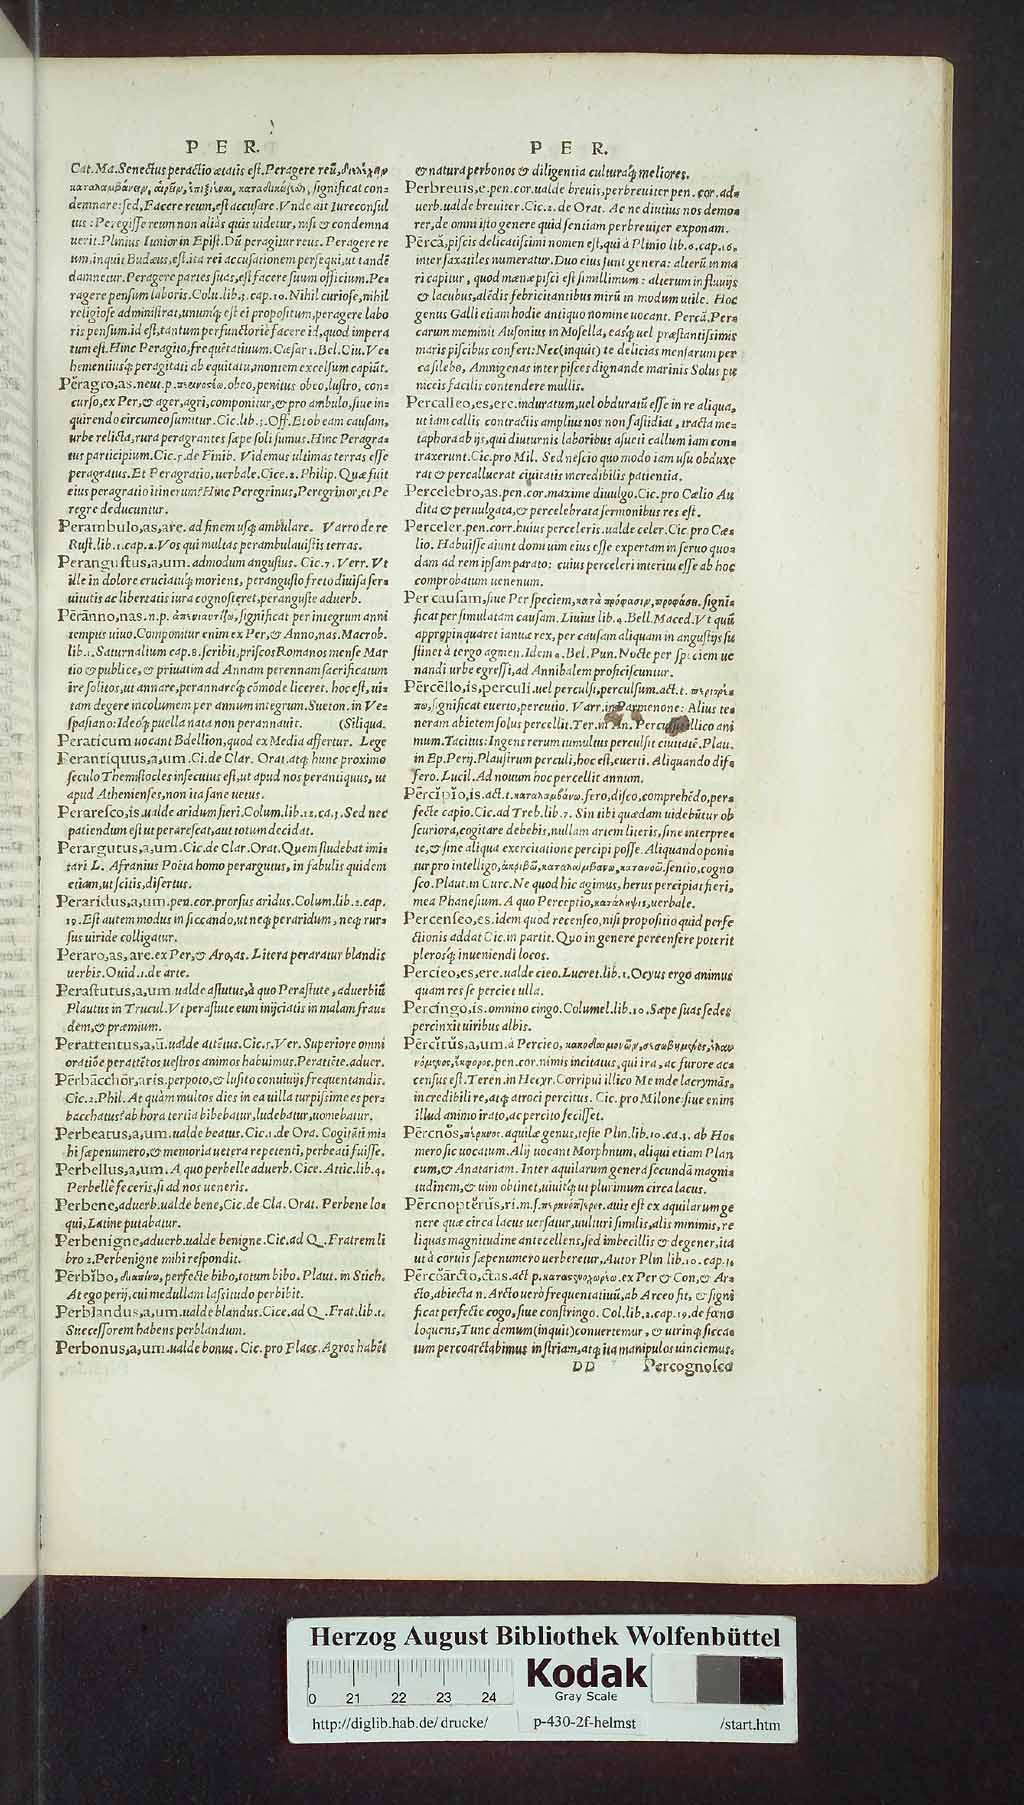 P E R.
Cat. Ma. Senectus peractio ætatis est. Peragere reũ,
significat con-
demnare: sed, Facere reum, est accusare. Vnde ait Iureconsul
tus: Peregisse reum non aliàs quis uidetur, nisi & condemna
uerit. Plinius Iunior in Epist. Dũ peragitur reus. Peragere re
um, inquit Budæus, est, ita rei accusationem persequi, ut tandẽ
damnetur. Peragere partes suas, est facere suum officium. Pe-
ragere pensum laboris. Colu. lib. 3. cap. 10. Nihil curiose, nihil
religiose administrat, unumq́; est ei propositum, peragere labo
ris pensum. id est, tantum perfunctoriè facere id, quod impera
tum est. Hinc Peragito, frequẽtatiuum. Cæsar 1. Bel. Ciu. Ve-
hementiusq́; peragitati ab equitatu, montem excelsum capiũt.
Pĕrăgro, as. neut. p. obeo, penitus obeo, lustro, con-
curso, ex Per, & ager, agri, componitur, & pro ambulo, siue in-
quirendo circumeo sumitur. Cic. lib. 3. Off. Et ob eam causam,
urbe relicta, rura peragrantes sæpe soli sumus. Hinc Peragra-
tus participium. Cic. 5. de Finib. Videmus ultimas terras esse
peragratus. Et Peragratio, uerbale. Cice. 2. Philip. Quæ fuit
eius peragratio itinerum? Hinc Peregrinus, Peregrinor, et Pe
regre deducuntur.
Perambulo, as, are. ad finem usq; ambulare. Varro de re
Rust. lib. 1. cap. 2. Vos qui multas perambulauistis terras.
Perangustus, a, um. admodum angustus. Cic. 7. Verr. Vt
ille in dolore cruciatuq́; moriens, perangusto freto diuisa ser-
uitutis ac libertatis iura cognosceret, peranguste aduerb.
Pĕrānno, nas. n. p. significat per integrum anni
tempus uiuo. Componitur enim ex Per, & Anno, nas. Macrob.
lib. 1. Saturnalium cap. 8. scribit, priscos Romanos mense Mar
tio & publice, & priuatim ad Annam perennam sacrificatum
ire solitos, ut annare, perannareq́; cõmode liceret. hoc est, ui-
tam degere incolumem per annum integrum. Sueton. in Ve-
spasiano: Ideoq́; puella nata non perannauit. (Siliqua.
Peraticum uocant Bdellion, quod ex Media affertur. Lege
Perantiquus, a, um. Ci. de Clar. Orat. atq; hunc proximo
seculo Themistocles insecutus est, ut apud nos perantiquus, ut
apud Athenienses, non ita sane uetus.
Peraresco, is. ualde aridum fieri. Colum. lib. 12. ca. 3. Sed nec
patiendum est ut perarescat, aut totum decidat.
Perargutus, a, um. Cic. de Clar. Orat. Quem studebat imi-
tari L. Afranius Poëta homo perargutus, in fabulis quidem
etiam, ut scitis, disertus.
Peraridus, a, um. pen. cor. prorsus aridus. Colum. lib. 2. cap.
19. Est autem modus in siccando, ut neq; peraridum, neq; rur-
sus uiride colligatur.
Peraro, as, are. ex Per, & Aro, as. Litera peraratur blandis
uerbis. Ouid. 1. de arte.
Perastutus, a, um ualde astutus, à quo Perastute, aduerbiũ
Plautus in Trucul. Vt perastute eum inijciatis in malam frau-
dem, & præmium.
Perattentus, a, ũ. ualde attẽtus. Cic. 5. Ver. Superiore omni
oratiõe perattẽtos uestros animos habuimus. Peratẽte. aduer.
Pērbācchŏr, aris. perpoto, & lusito conuiuijs frequentandis.
Cic. 2. Phil. At quàm multos dies in ea uilla turpissime es per-
bacchatus? ab hora tertia bibebatur, ludebatur, uomebatur.
Perbeatus, a, um. ualde beatus. Cic. 1. de Ora. Cogitãti mi-
hi sæpenumero, & memoria uetera repetenti, perbeati fuisse.
Perbellus, a, um. A quo perbelle aduerb. Cice. Attic. lib. 4.
Perbellè feceris, si ad nos ueneris.
Perbene, aduerb. ualde bene, Cic. de Cla. Orat. Perbene lo-
qui, Latine putabatur.
Perbenigne, aduerb. ualde benigne. Cic. ad Q. Fratrem li
bro 2. Perbenigne mihi respondit.
Pērbĭbo, perfecte bibo, totum bibo. Plaut. in Stich.
At ego perij, cui medullam lassitudo perbibit.
Perblandus, a, um. ualde blandus. Cice. ad Q. Frat. lib. 1.
Successorem habens perblandum.
Perbonus, a, um. ualde bonus. Cic. pro Flacc. Agros habẽt
P E R.
& natura perbonos & diligentia culturaq́; meliores.
Perbreuis, e. pen. cor. ualde breuis, perbreuiter pen. cor. ad-
uerb. ualde breuiter. Cic. 2. de Orat. Ac ne diutius nos demo-
rer, de omni isto genere quid sentiam perbreuiter exponam.
Pērcă, piscis delicatissimi nomen est, qui à Plinio lib. 6. cap. 16.
inter saxatiles numeratur. Duo eius sunt genera: alterũ in ma
ri capitur, quod mænæ pisci est simillimum: alterum in fluuijs
& lacubus, alẽdis febricitantibus mirũ in modum utile. Hoc
genus Galli etiam hodie antiquo nomine uocant. Percã. Per-
carum meminit Ausonius in Mosella, easq́; uel præstantissimis
maris piscibus confert: Nec (inquit) te delicias mensarum per
ca silebo, Amnigenas inter pisces dignande marinis Solus pu
niceis facilis contendere mullis.
Percalleo, es, ere. induratum, uel obduratũ esse in re aliqua,
ut iam callis contractis amplius nos non fastidiat, tracta me-
taphora ab ijs, qui diuturnis laboribus asueti callum iam con-
traxerunt. Cic. pro Mil. Sed nescio quo modo iam usu obduxe
rat & percalluerat ciuitatis incredibilis patientia.
Percelebro, as. pen. cor. maxime diuulgo. Cic. pro Cælio Au
dita & peruulgata, & percelebrata sermonibus res est.
Perceler. pen. corr. huius perceleris. ualde celer. Cic. pro Cæ-
lio. Habuisse aiunt domi uim eius esse expertam in seruo quo-
dam ad rem ipsam parato: cuius perceleri interitu esse ab hoc
comprobatum uenenum.
Per causam, siue Per speciem, κατὰ πρόφασιν, προφάσει. signi-
ficat per simulatam causam. Liuius lib. 4. Bell. Maced. Vt quũ
appropinquaret ianuæ rex, per causam aliquam in angustijs su
stinet à tergo agmen. Idem 4. Bel. Pun. Nocte per speciem ue
nandi urbe egressi, ad Annibalem proficiscuntur.
Pērcēllo, is, perculi. uel perculsi, perculsum. act. t.
significat euerto, percutio. Varr. in Parmenone: Alius te-
neram abietem solus percellit. Ter. in An. illico ani
mum. Tacitus: Ingens rerum tumultus perculsit ciuitatẽ. Plau.
in Ep. Perij. Plausirum perculi, hoc est, euerti. Aliquando dif-
fero. Lucil. Ad nouum hoc percellit annum.
Pērcĭpĭo, is. act. t. καταλαμβάνω. fero, disco, comprehẽdo, per-
fecte capio. Cic. ad Treb. lib. 7. Sin tibi quædam uidebũtur ob
scuriora, cogitare debebis, nullam artem literis, sine interpre-
te, & sine aliqua exercitatione percipi posse. Aliquando poni-
tur pro intelligo, ἀκριβῶ, καταλαμβάνω, κατανοῶ. sentio, cogno
sco. Plaut. in Curc. Ne quod hic agimus, herus percipiat fieri,
mea Phanesium. A quo Perceptio, κατάληψις, uerbale.
Percenseo, es. idem quod recenseo, nisi propositio quid perfe
ctionis addat Cic. in partit. Quo in genere percensere poterit
plerosq́; inueniendi locos.
Percieo, es, ere. ualde cieo. Lucret. lib. 1. Ocyus ergo animus
quam res se perciet ulla.
Percingo, is. omnino cingo. Columel. lib. 10. Sæpe suas sedes
percinxit uiribus albis.
Pērcĭtŭs, a, um. à Percieo,
pen. cor. nimis incitatus, qui ira, ac furore ac-
census est. Teren. in Hecyr. Corripui illico Me inde lacrymãs,
incredibili re, atq; atroci percitus. Cic. pro Milone: siue enim
illud animo irato, ac percito fecisset.
Pērcnŏs, πέρκνος. aquilæ genus, teste Plin. lib. 10. ca. 3. ab Ho-
mero sic uocatum. Alij uocant Morphnum, aliqui etiam Plan
cum, & Anatariam. Inter aquilarum genera secundã magni-
tudinem, & uim obtinet, uiuitq́; ut plurimum circa lacus.
Pērcnoptĕrŭs, ri. m. s. auis est ex aquilarum ge
nere quæ circa lacus uersatur, uulturi similis, alis minimis, re
liquas magnitudine antecellens, sed imbecillis & degener, ita
ut à coruis sæpenumero uerberetur. Autor Plin lib. 10. cap. 3.
Pērcŏārcto, ctas. act p. ex Per & Con, & Ar-
cto, abiecta n. Arcto uerò frequentatiuũ, ab Arceo fit, & signi
ficat perfecte cogo, siue constringo. Col. lib. 2. cap. 19. de fœno
loquens, Tunc demum (inquit) conuertemur, & utrinq; sicca-
tum percoarctabimus in striam, atq; ita manipulos uinciemus.
DD Percognosco
Herzog August Bibliothek Wolfenbüttel
Kodak
Gray Scale
0 21 22 23 24
http://diglib.hab.de/drucke/ p-430-2f-helmst /start.htm